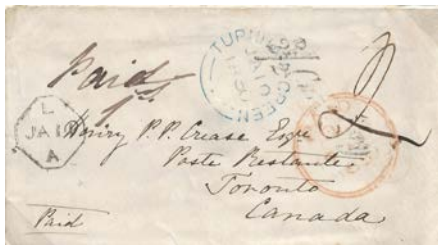 Paid
TURNHAM GREEN
JA 10
L
JA 10
A
Henry P.P. Crease Esqre
Poste Restante
Toronto
Canada
Paid